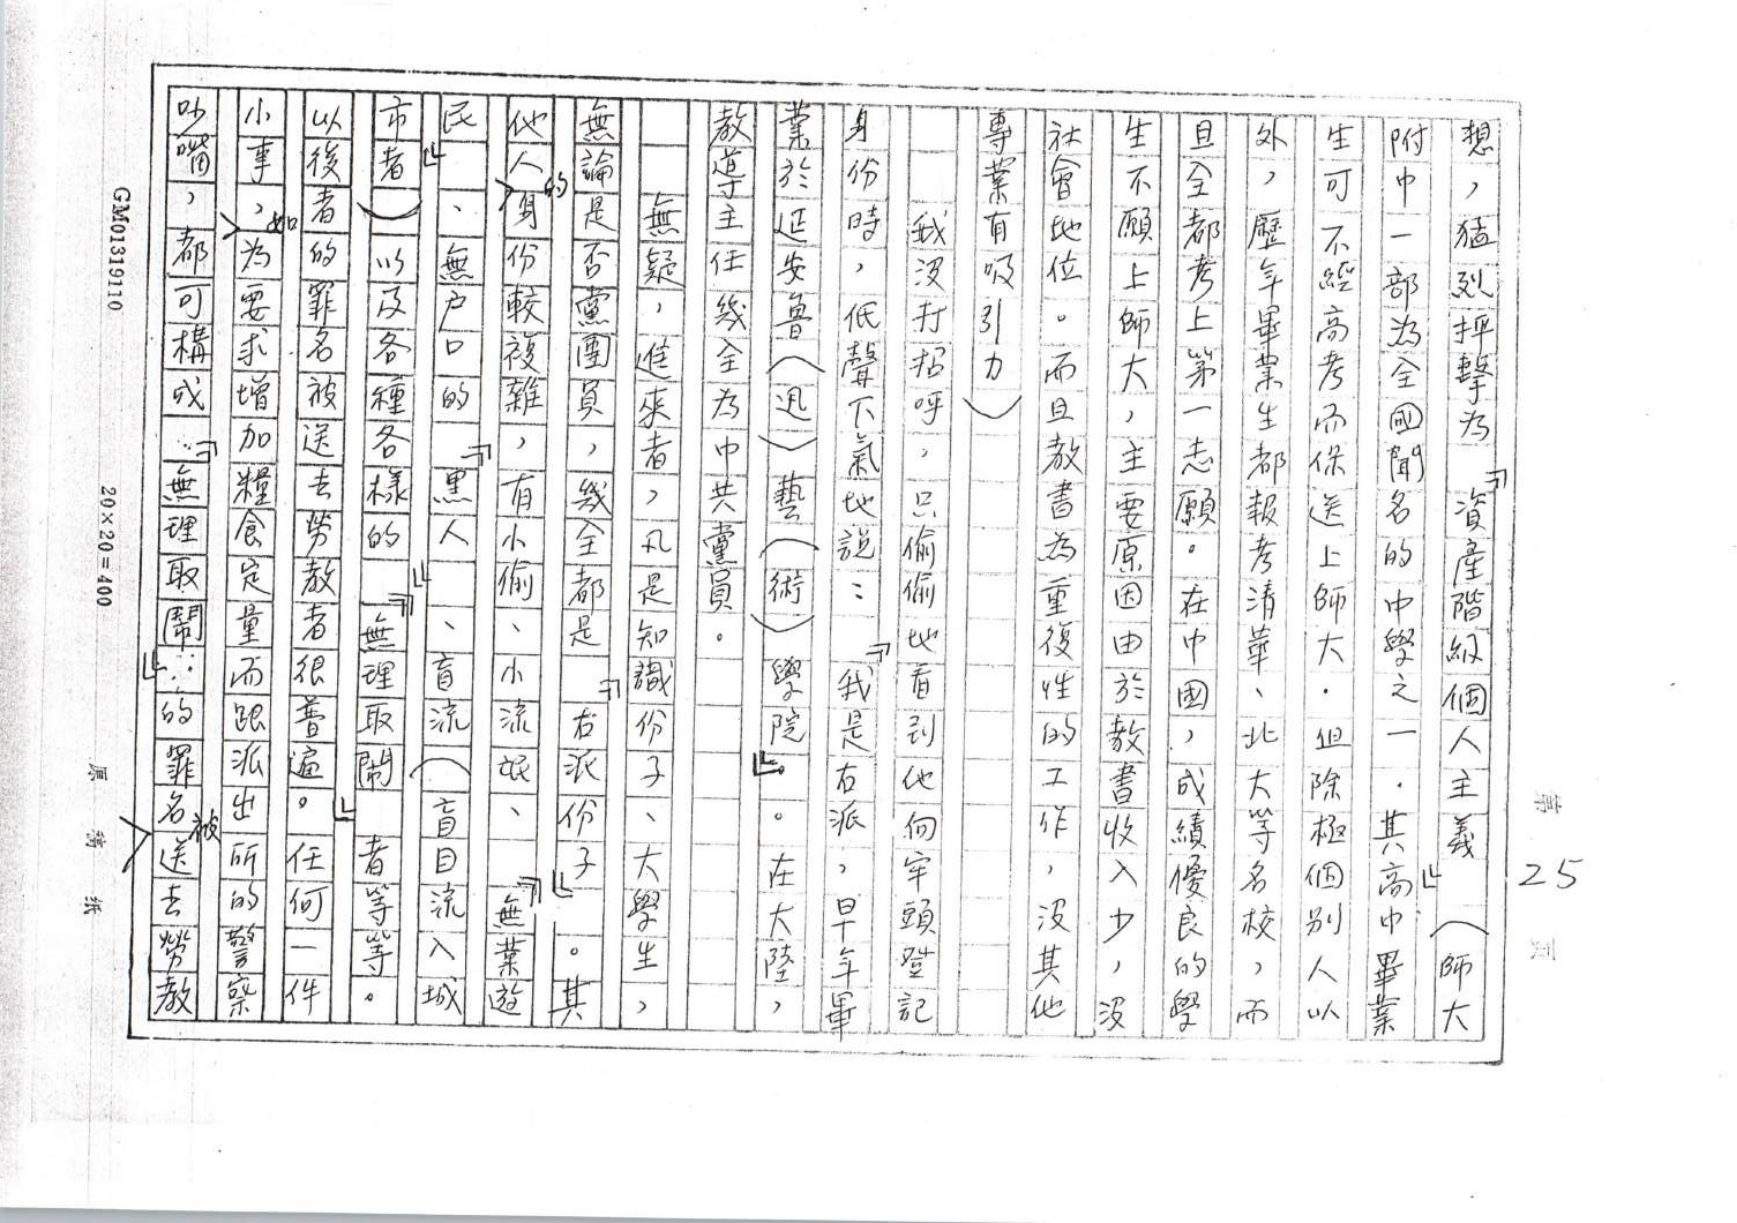 第 25 頁
想，猛烈抨擊為『資產階級個人主義』（師大
附中一部為全國聞名的中學之一．其高中畢業
生可不經高考而保送上師大．但除極個別人以
外，歷年畢業生都報考清華、北大等名校，而
且全都考上第一志願。在中國，成績優良的學
生不願上師大，主要原因由於教書收入少，沒
社會地位。而且教書為重復性的工作，沒其他
專業有吸引力）
我沒打招呼，只偷偷地看到他向牢頭登記
身份時，低聲下氣地說：『我是右派，早年畢
業於延安魯（迅）藝（術）學院』。在大陸，
教導主任幾全為中共黨員。
無疑，進來者，凡是知識份子、大學生，
無論是否黨團員，幾全都是『右派份子』。其
他人的身份較複雜，有小偷、小流氓、『無業遊
民』、無户口的『黑人』、盲流（盲目流入城
市者）以及各種各樣的『無理取鬧』者等等。
以後者的罪名被送去勞教者很普遍。任何一件
小事，如為要求增加糧食定量而跟派出所的警察
吵嘴，都可構成『無理取鬧』的罪名被送去勞教
GM01319110
20×20=400
原稿紙